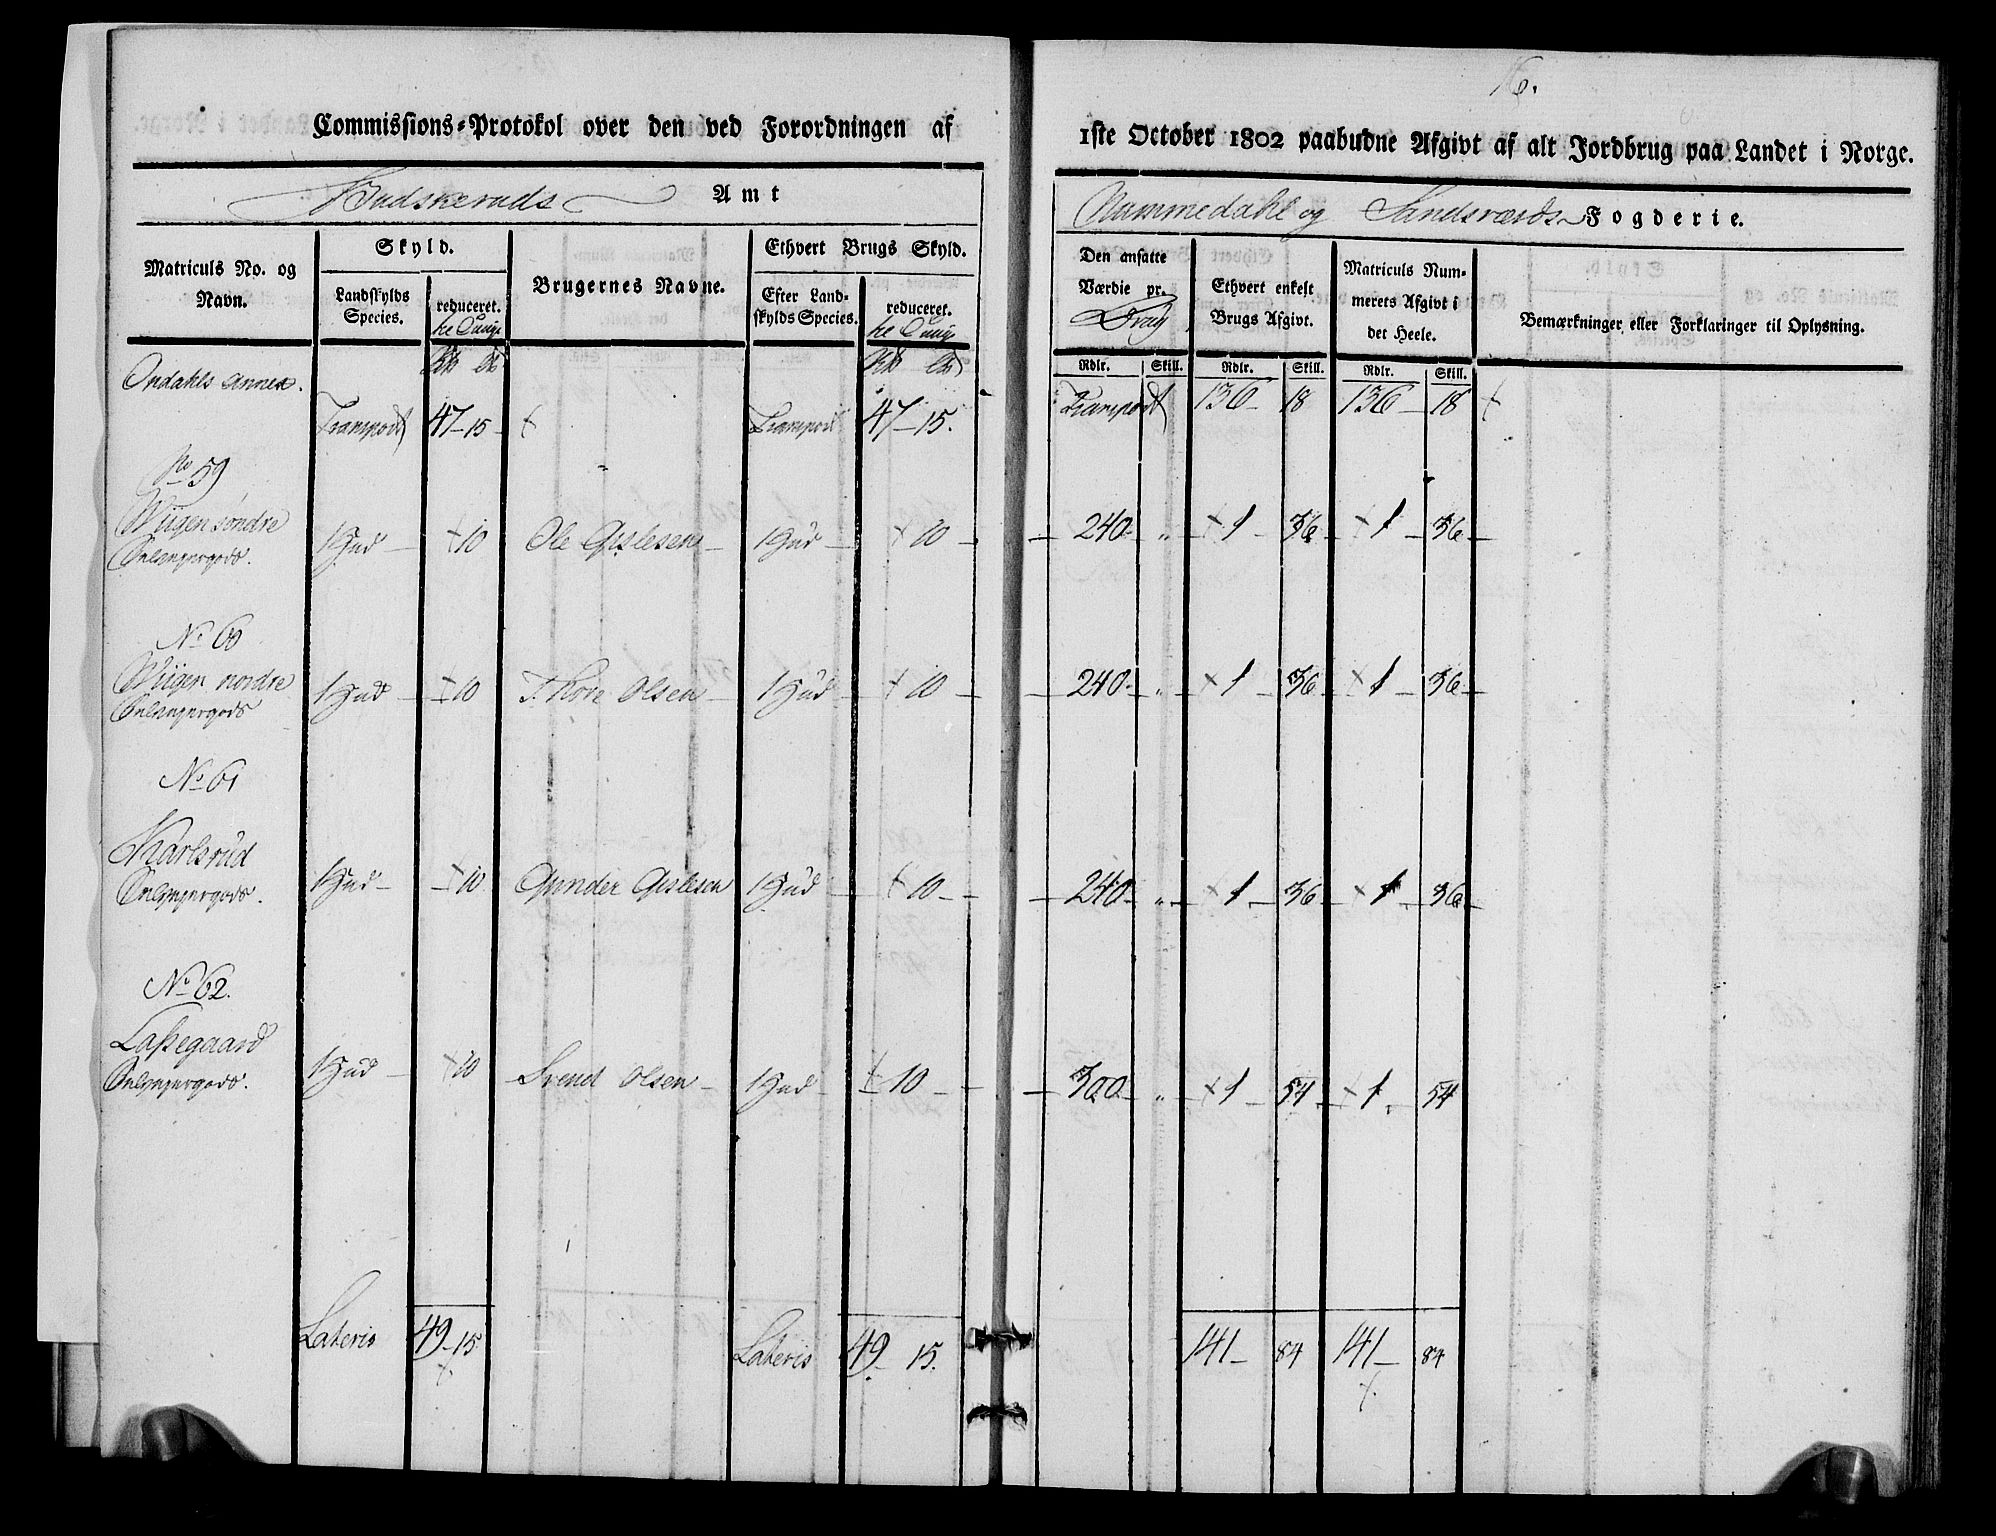 16.
Commissions-Protokol over den ved Forordningen af 1ste October 1802 paabudne Afgivt af alt Jordbrug paa Landet i Norge.
Budskeruds Amt
Nummedahl og Sandsværds Fogderie.
Matriculs No. og Navn.
Skyld.
Landskylds Species.
reduceret.
Brugernes Navne.
Ethvert Brugs Skyld.
Efter Landskylds Species.
reduceret.
Den ansatte Værdie pr.
Ethvert enkelt Brugs Afgivt.
Matriculs Nummerets Afgivt i det Heele.
Bemærkninger eller Forklaringer til Oplysning.
Rdlr. Skill. Rdlr. Skill. Rdlr. Skill.
Ondahls Annex.
Transport 47 - 15 - Transport 47 - 15. Transport 136 - 18 136 - 18
No 59
Wiigen søndre 1 Hud - 10 Ole Gislesen - 1 Hud - 10 - 240 - „ - 1 - 36 - 1 - 36 -
Selveyergods.
No 60
Wiigen nordre 1 Hud - 10 Thore Olsen - 1 Hud - 10 - 240 - „ - 1 - 36 - 1 - 36 -
Selveyergods
No 61
Karlsrud 1 Hud - 10 Gunder Gislesen 1 Hud - 10 - 240 - „ - 1 - 36 - 1 - 36 -
Selveyergods.
No 62.
Lassegaard 1 Hud - 10 Svend Olsen - 1 Hud - 10 - 300 - „ - 1 - 54 - 1 - 54
Selveyergods.
Lateris 49 - 15. Lateris 49 - 15. 141 - 84 141 - 84